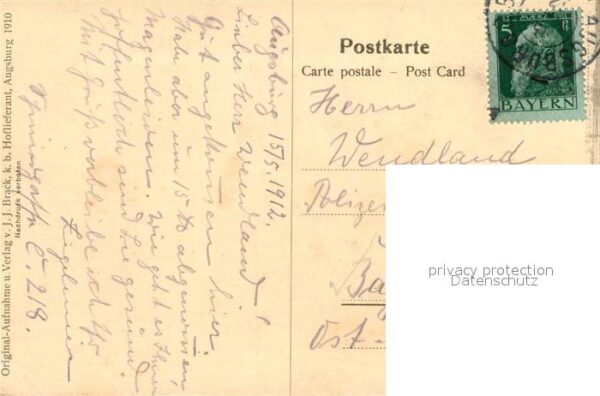 Original-Aufnahme u. Verlag v. J. J. Brack, k. b. Hoflieferant, Augsburg 1910
Nachdruck verboten
Augsburg 15/5. 1912.
Lieber Herr Wendland!
Gut angekommen hier.
Habe aber um 15 abgenommen,
Magenleiden. Wie geht es Ihnen
hoffentlich sind Sie gesund.
Mit Gruß verbleibe ich Ihr
C. 218.
Postkarte
Carte postale – Post Card
5
MÄRZ
BAYERN
Herrn
Wendland
Ba
Ost
privacy protection
Datenschutz